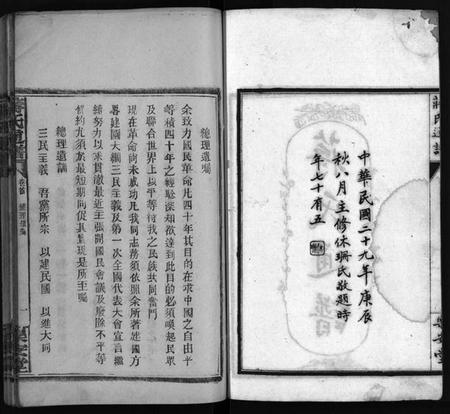 中華民國二十九年庚辰
秋八月主修休珊氏敬題時
年七十有五
蔣氏通譜
總理遺囑
余致力國民革命凡四十年其目的在求中國之自由平
等積四十年之經驗深知欲達到此目的必須喚起民眾
及聯合世界上以平等待我之民族共同奮鬥
現在革命尚未成功凡我同志務須依照余所著建國方
略建國大綱三民主義及第一次全國代表大會宣言繼
續努力以求貫徹最近主張開國民會議及廢除不平等
條約尤須於最短期間促其實現是所至囑
總理遺訓
三民主義 吾黨所宗 以建民國 以進大同
卷首
總理遺囑
一